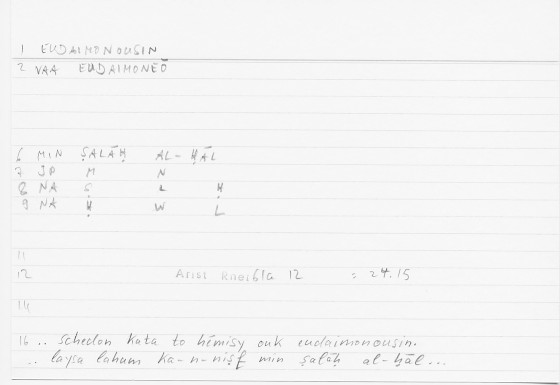 1 EUDAIMONOUSIN
2 VAA EUDAIMONEŌ
6 MIN ṢALĀḤ AL-ḤĀL
7 JP M N
8 NA Ṣ L Ḥ
9 NA Ḥ W L
11
12 Arist Rhet 61a 12 = 24.15
14
16 .. schedon kata to hēmisy ouk eudaimonousin.
.. laysa lahum ka-n-niṣf min ṣalāḥ al-ḥāl...